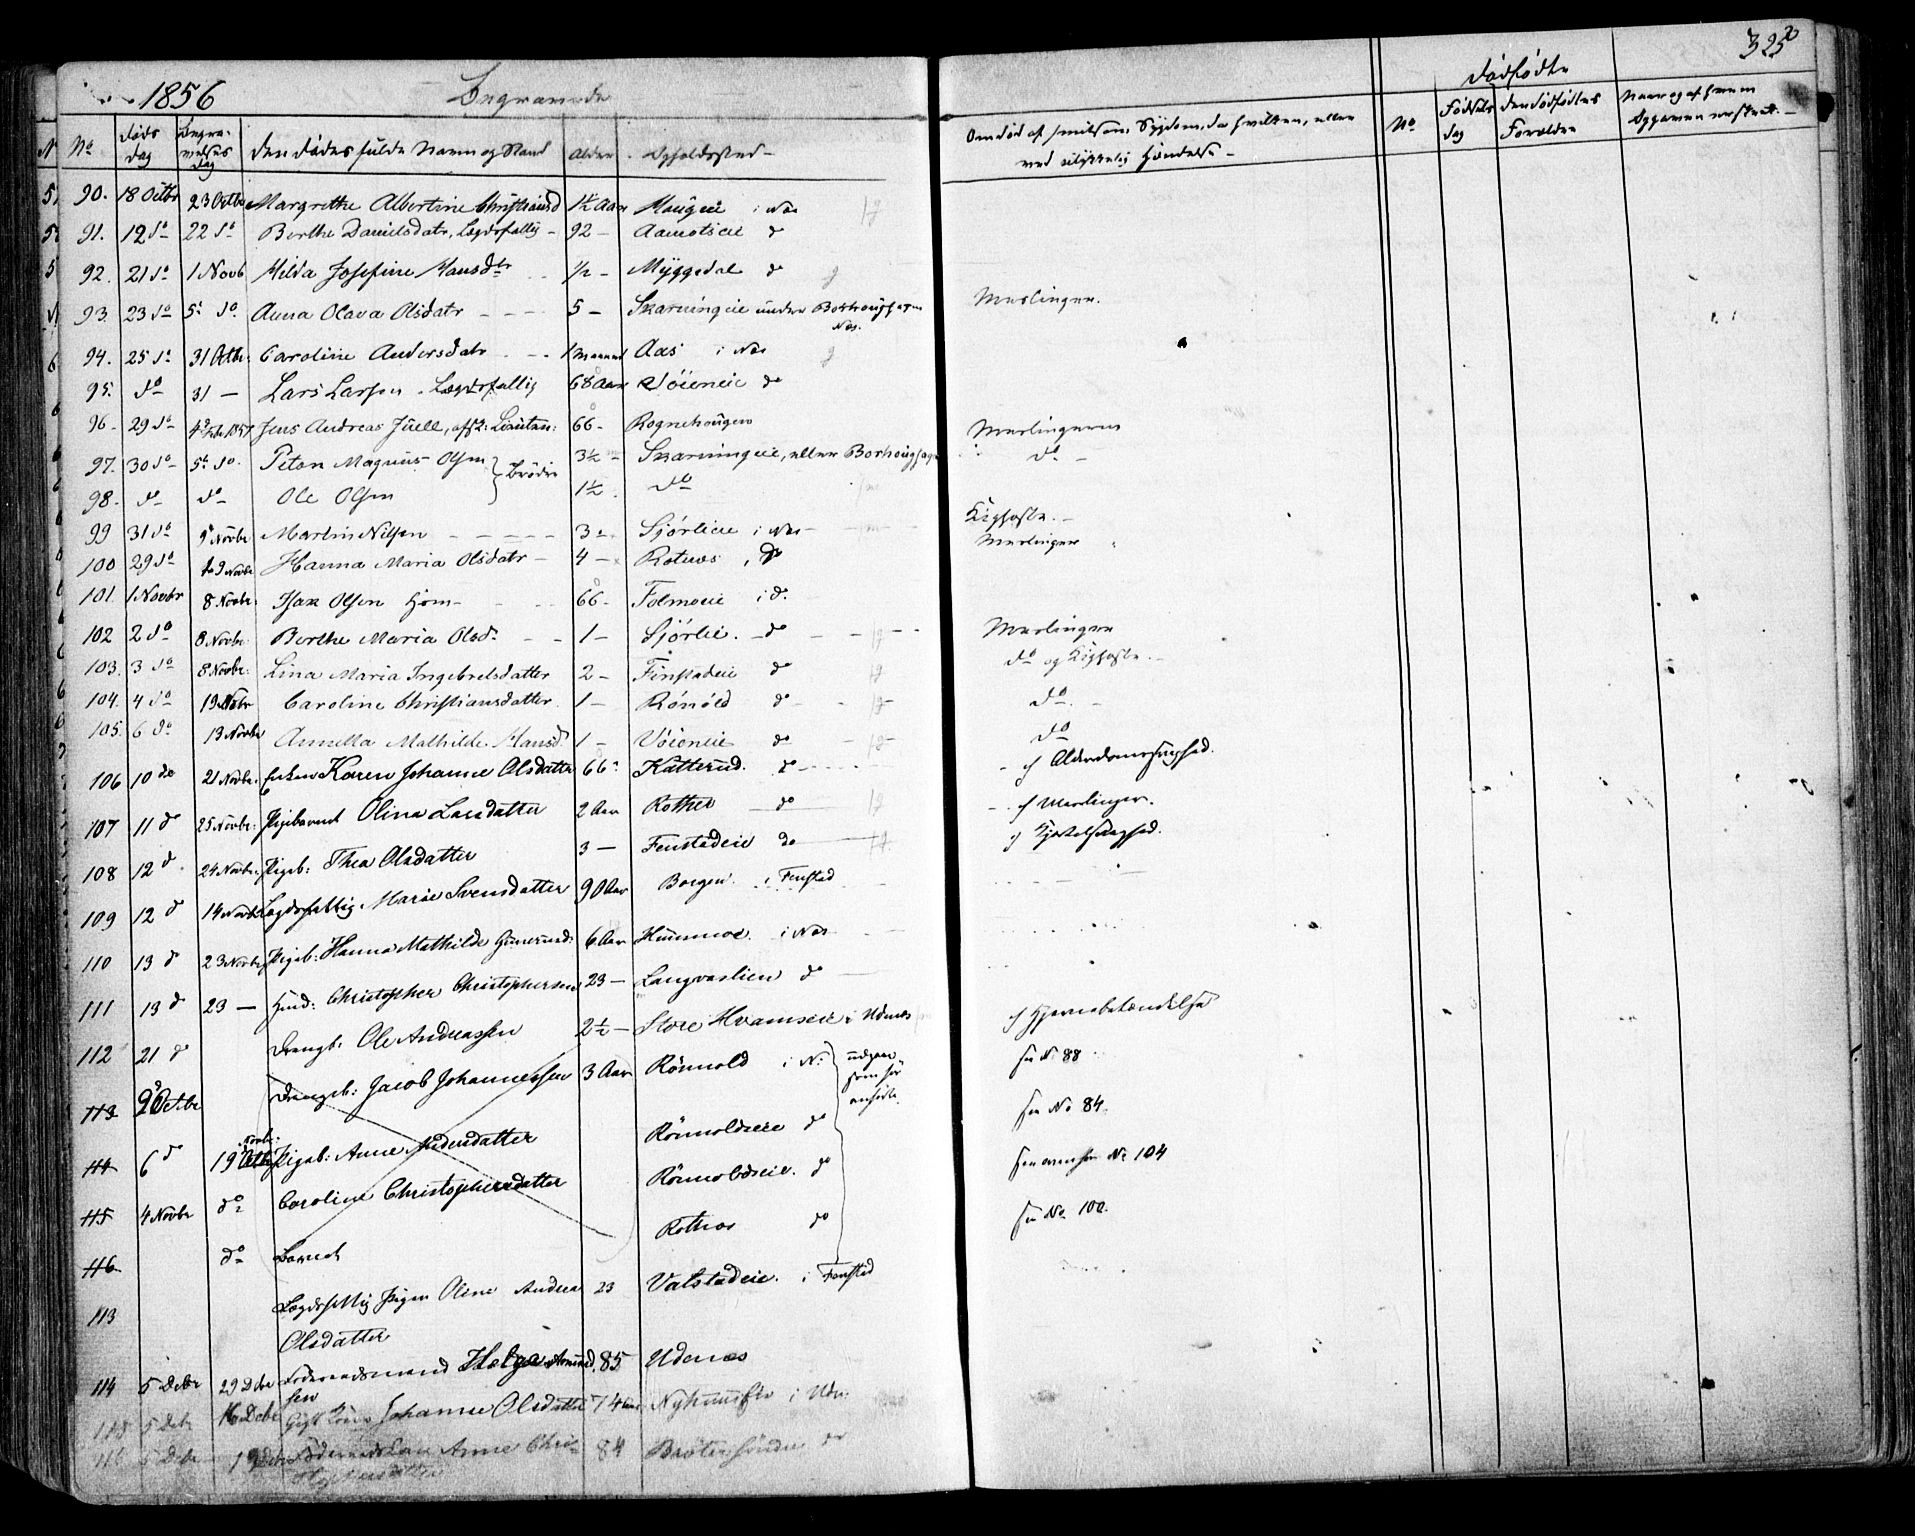 1856 Begravede
325
No Døds Dag Begravelses Dag Den Dødes fulde Navn og Stand Alder Opholdssted
Om død af smitsom Sygdom, da hvilken, eller
ved ulykkelig Hændelse
No Fødsels Dag Den Dødfødtes Forældre
Dødfødte
90. 18 Octbr 23 Octbr Margrethe Albertine Christiansd 1½ Aar Haugeie i Næs
91. 12 do 22 do Berthe Danielsdatr, Lægdsfattig - 92 - Aamotseie do
92. 21 do 1 Novb Hilda Josefine Hansdtr ½ - Myggedal do
93. 23 do 5t do Anna Olava Olsdatr 5 - Skarningeie under Borhoughagen Næs. Meslinger.
94. 25 do 31 Octbr: Caroline Andersdatr 1 Maaned Aas i Næs
95. do 31 - Lars Larsen. Lægdsfattig 68 Aar Vøieneie do
96. 29 do 1857 Jens Andreas Juell, afsk: Lieutnn: 66 - Rognehougen
97. 30 do 5t do Peter Magnus Olsen } Brødre 3½ - Skarningeie, eller Borhoughagen Meslingerne
98. do do Ole Olsen 1½. do do
99 31 do 9 Novbr Martin Nilsen 3 - Sjørlieie i Næs Kighoste.
100 29 do 9 Novbr Hanna Maria Olsdatr - 4 - Rotnæs, do Meslinger
101. 1 Novbr 8 Novbr. Isak Olsen 66 - Folmoeie i do.
102 2 do 8 Novbr. Berthe Maria Olsd. 1 - Sjørlie. do Meslinger
103. 3 do 8 Novbr. Lina Maria Ingebretsdatter 2 - Finstadeie do do og Kighoste.
104. 4 do 19 Novbr Caroline Christiansdatter 1 - Rønold do do
105. 6 do 13 Novbr Annetta Mathilde Hansd. 1 - Vøieneie do do
106 10 do 21 Novbr. Enken Karen Johanne Olsdatter 66 Katterud. do af Alderdomssvaghed.
107 11 do 25 Novbr. Pigebarnet Olina Larsdatter 2 Aar Rother do af Meslinger.
108 12 d 24 Novbr. Pigeb: Thea Olsdatter 3 - Fenstadeie do af Kjertelsvaghed.
109 12 d 14 Novbr Lægdsfattig Marie Svensdatter 90 Aar Borgen. i Fenstad
110 13 d 23 Novbr Pigeb: Hanna Mathilde Gunerusd: 6 Aar Hummoe. i Næs
111 13 d 23 - Christopher Christophersen 23 - Langvaslien do
112 21 d Drengb: Ole Andreassen 2½ - Store Hvamseie i Udnæs af Hjernebetændelse
113 9 Octbr Drengb: Jacob Johannessen 3 Aar Rønnold i N: see No 88
udgaaer som før anførte.
114 6 d 19 Novbr: Pigeb: Anne Pedersdatter Rønnoldseie do see No 84.
115 4 Novbr do Caroline Christophersdatter Rønnoldseie. do see No 104
116. do Barnet Rotnæs do see No 100.
113 Lægdsfattig Pigen Oline Andrea 23 Valstadeie. i Fenstad
Olsdatter
114 5 Debr 29 Debr Føderaadsmand Helge 85 Udenæs
sen
115 5 Debr 16 Debr Gift Kone Johanne Olsdatter 74 Aar i Udn.
116 5 Debr Anne Chri- 84 Brøten søndre do
stophersdatter